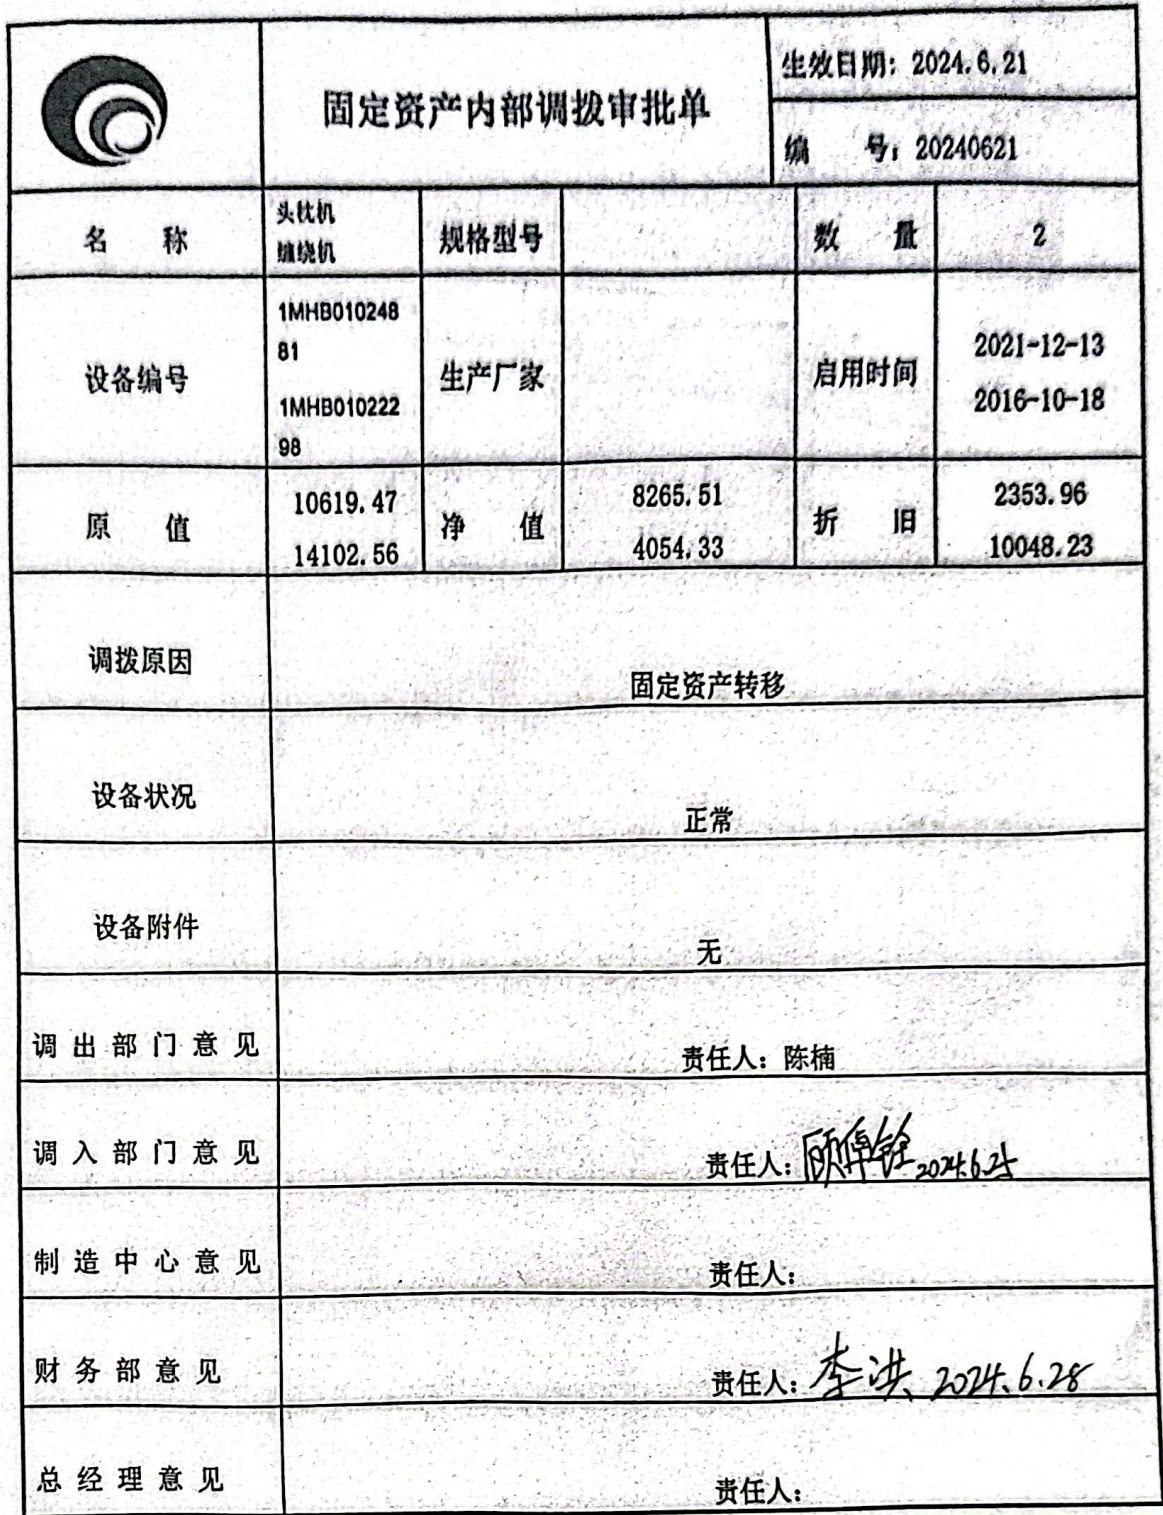 固定资产内部调拨审批单
生效日期：2024.6.21
编 号：20240621
名 称
头枕机
缠绕机
规格型号
数 量
2
设备编号
1MHB010248
81
1MHB010222
98
生产厂家
启用时间
2021-12-13
2016-10-18
原 值
10619.47
14102.56
净 值
8265.51
4054.33
折 旧
2353.96
10048.23
调拨原因
固定资产转移
设备状况
正常
设备附件
无
调出部门意见
责任人：陈楠
调入部门意见
责任人：顾 铨 2024.6.25
制造中心意见
责任人：
财务部意见
责任人：李洪 2024.6.28
总经理意见
责任人：